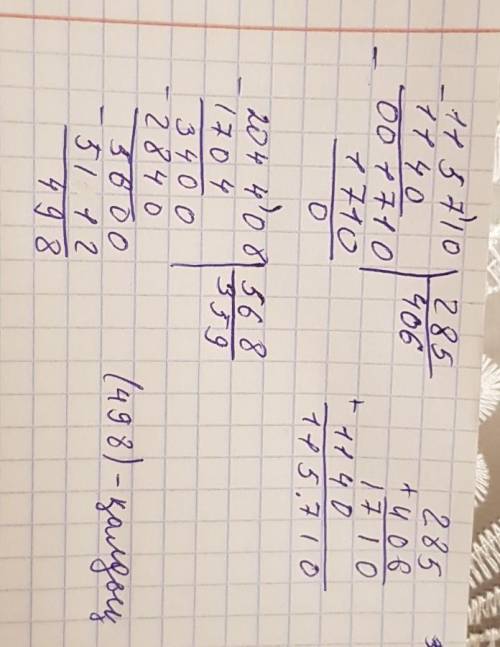 - 1157)10 | 285
1140 406
- 001710
1710
0
285
+ 406
1710
+ 1140
115.710
- 2044)08 | 568
1704 359
3400
- 2840
5600
- 5112
498
(498) - қалдық